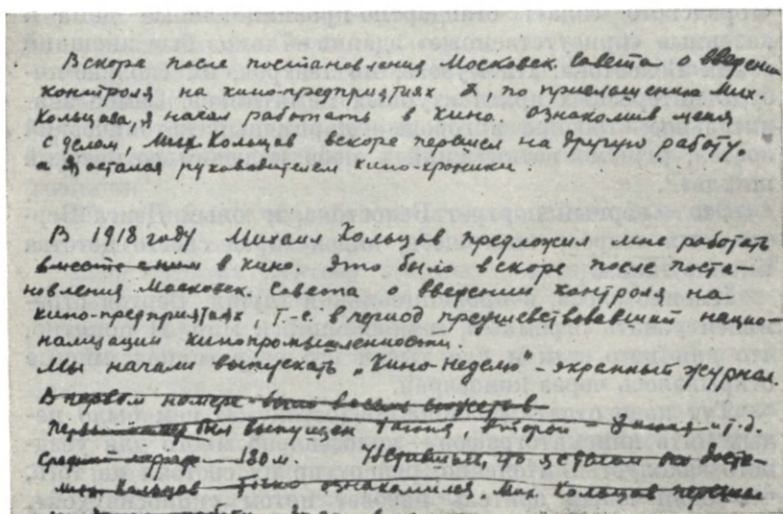 Вскоре после постановления Московск. Совета о введении
контроля на кино-предприятиях я, по приглашению Мих.
Кольцова, я начал работать в кино. Ознакомив меня
с делом, Мих. Кольцов вскоре перешел на другую работу,
а я остался руководителем кино-хроники.
В 1918 году Михаил Кольцов предложил мне работать
вместе с ним в кино. Это было вскоре после поста-
новления Московск. Совета о введении контроля на
кино-предприятиях, т.-е. в период предшествовавший нацио-
нализации кинопромышленности.
Мы начали выпускать „Кино-Неделю" – экранный журнал.
В первом номере было восемь сюжетов
Первый был выпущен 1 июня, второй – июня и т.д.
150 м. Убедившись, что с делом
Мих. Кольцов только ознакомился. Мих. Кольцов перешел